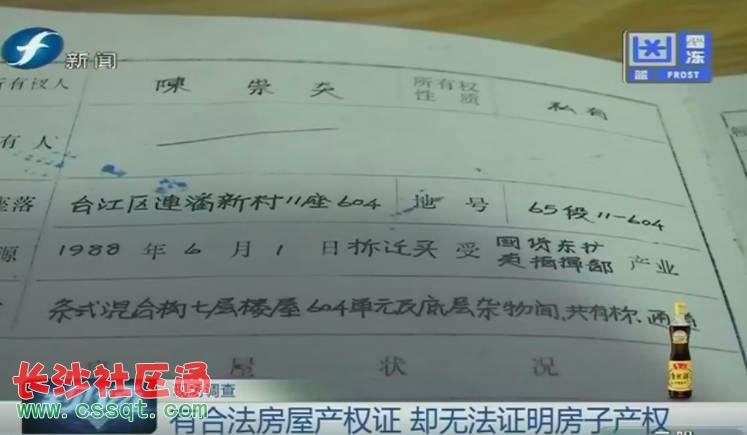 新闻
冻
蓝 FROST
所有权人 陳崇炎 所有权性质 私有
有人
座落 台江区連潘新村11座604 地号 65段11-604
源 1988年6月1日拆迁买受国货东扩道指揮部产业
条式混合构七层楼屋604单元及底层杂物间.共有梯.通道
屋状况
调查
有合法房屋产权证 却无法证明房子产权
长沙社区通
www.cssqt.com